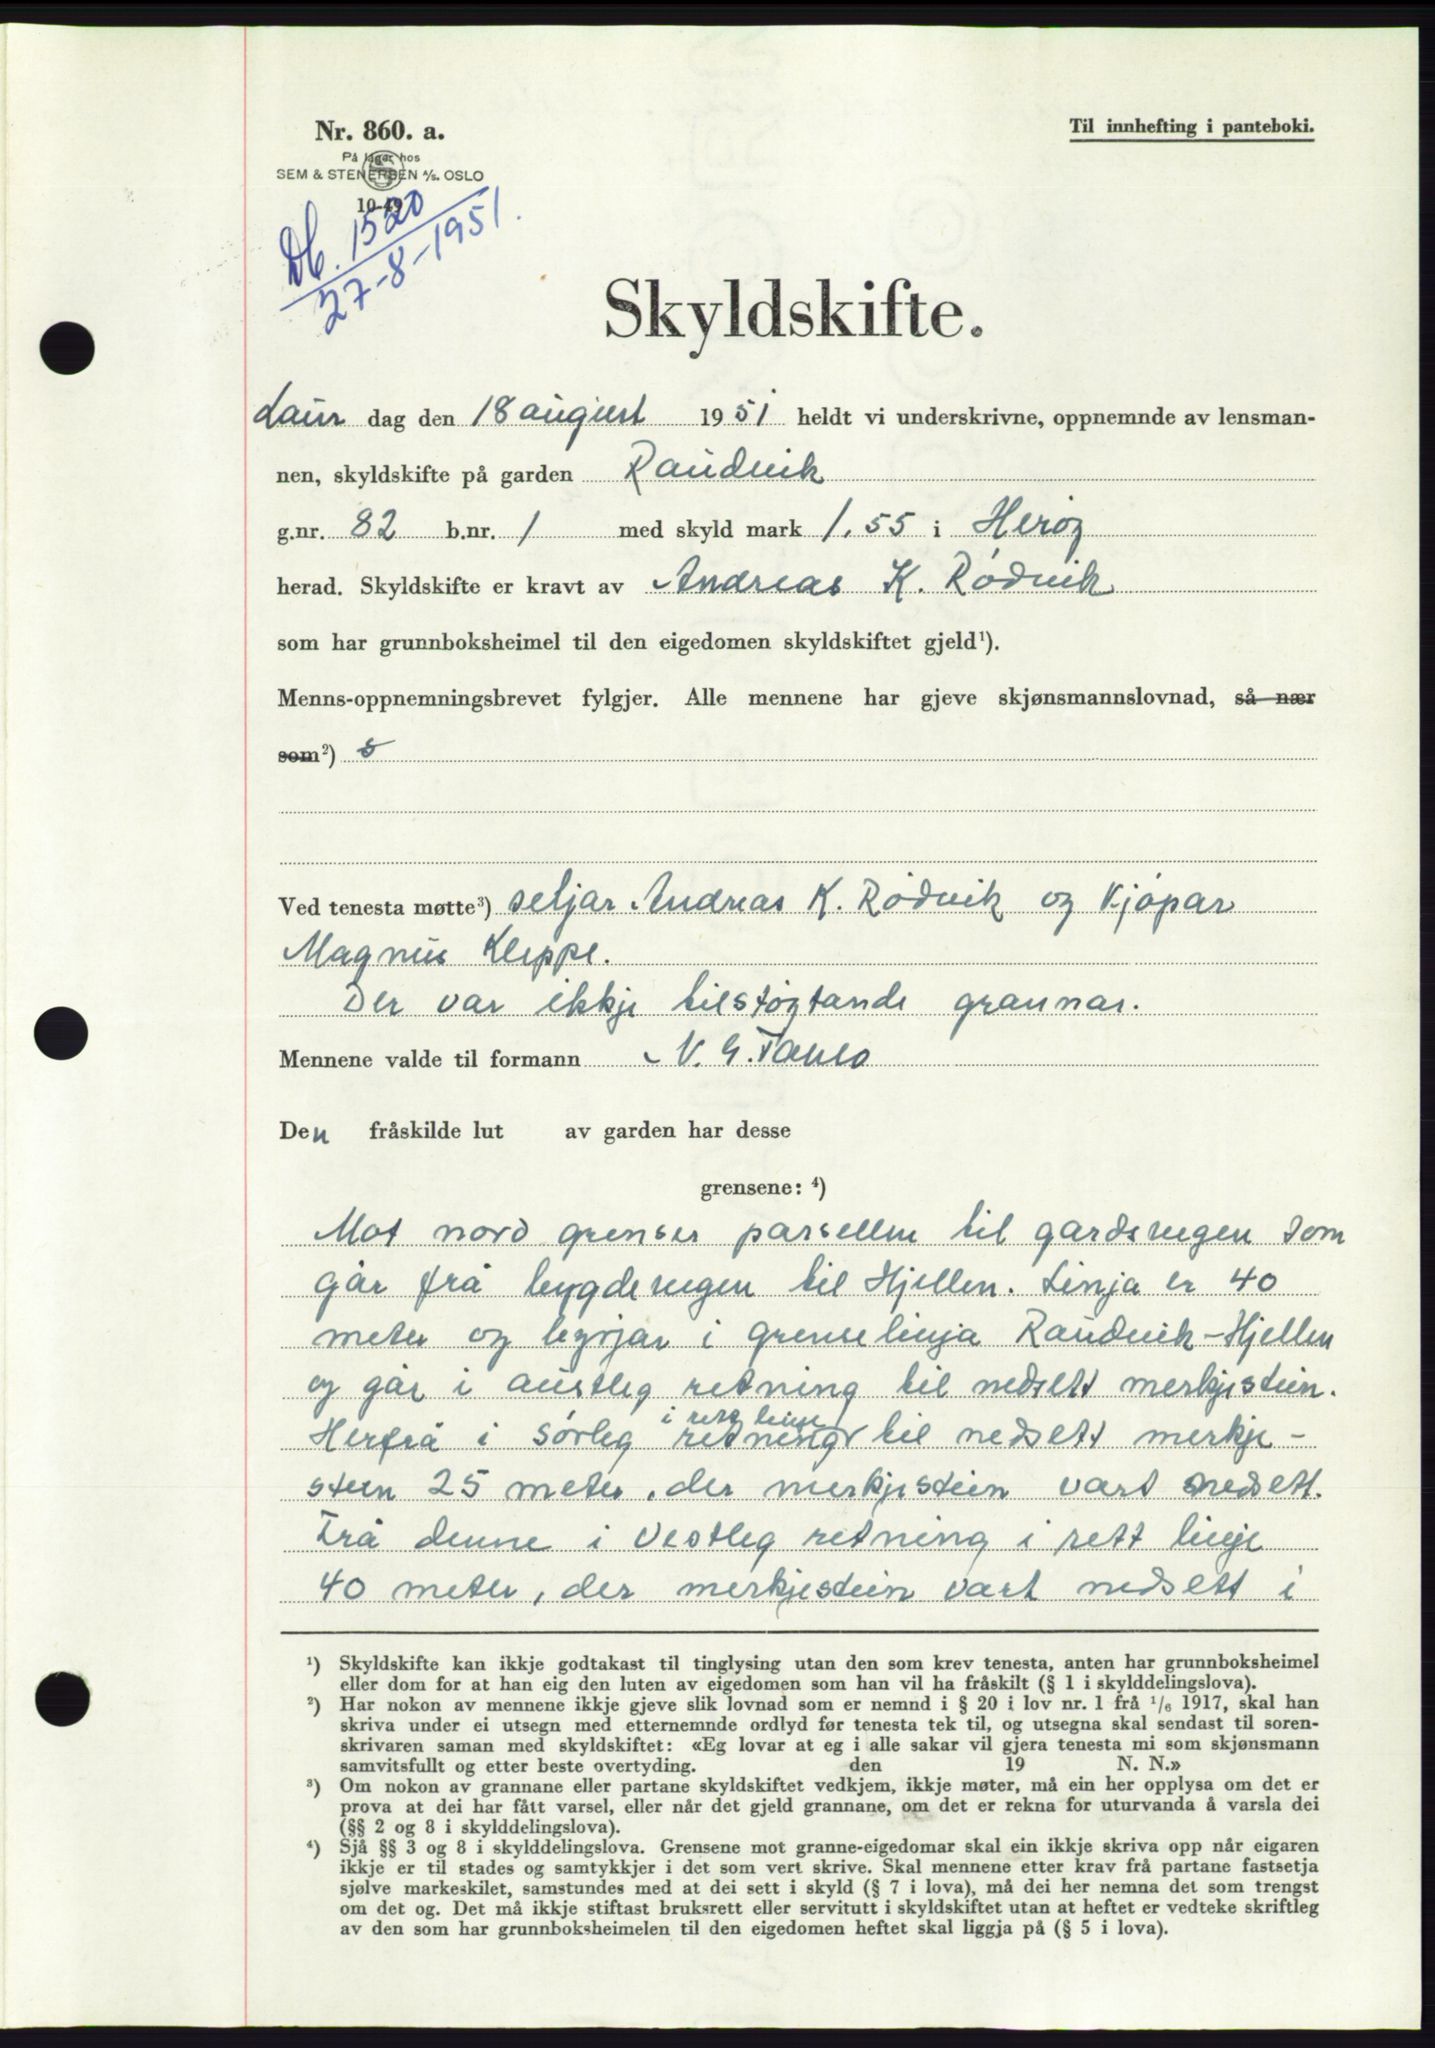 Nr. 860. a.
Til innhefting i panteboki.
På lager hos
SEM & STENERSEN A/S. OSLO
10-49
Db. 1520
27-8-1951.
Skyldskifte.
Laur dag den 18 august 1951 heldt vi underskrivne, oppnemnde av lensman-
nen, skyldskifte på garden Raudvik
g.nr. 82 b.nr. 1 med skyld mark 1,55 i Herøy
herad. Skyldskifte er kravt av Andreas K. Rødvik
som har grunnboksheimel til den eigedomen skyldskiftet gjeld¹).
Menns-oppnemningsbrevet fylgjer. Alle mennene har gjeve skjønsmannslovnad, så nær
som²)
Ved tenesta møtte³) seljar Andreas K. Rødvik og kjøpar
Magnus Kleppe.
Der var ikkje tilstøytande grannar.
Mennene valde til formann N. G.
Den fråskilde lut av garden har desse
grensene: ⁴)
Mot nord grenser parsellen til gardsvegen som
går frå bygdevegen til Hjellen. Linja er 40
meter og byrjar i grenselinja Raudvik-Hjellen
og går i austleg retning til nedsett merkjestein.
i rett linje
Herfrå i sørleg retning til nedsett merkje-
stein 25 meter, der merkjestein vart nedsett.
Frå denne i vestleg retning i rett linje
40 meter, der merkjestein vart nedsett i
¹) Skyldskifte kan ikkje godtakast til tinglysing utan den som krev tenesta, anten har grunnboksheimel
eller dom for at han eig den luten av eigedomen som han vil ha fråskilt (§ 1 i skylddelingslova).
²) Har nokon av mennene ikkje gjeve slik lovnad som er nemnd i § 20 i lov nr. 1 frå 1/6 1917, skal han
skriva under ei utsegn med etternemnde ordlyd før tenesta tek til, og utsegna skal sendast til soren-
skrivaren saman med skyldskiftet: «Eg lovar at eg i alle sakar vil gjera tenesta mi som skjønsmann
samvitsfullt og etter beste overtyding. den 19 N. N.»
³) Om nokon av grannane eller partane skyldskiftet vedkjem, ikkje møter, må ein her opplysa om det er
prova at dei har fått varsel, eller når det gjeld grannane, om det er rekna for uturvanda å varsla dei
(§§ 2 og 8 i skylddelingslova).
⁴) Sjå §§ 3 og 8 i skylddelingslova. Grensene mot granne-eigedomar skal ein ikkje skriva opp når eigaren
ikkje er til stades og samtykkjer i det som vert skrive. Skal mennene etter krav frå partane fastsetja
sjølve markeskilet, samstundes med at dei sett i skyld (§ 7 i lova), må dei her nemna det som trengst
om det og. Det må ikkje stiftast bruksrett eller servitutt i skyldskiftet utan at heftet er vedteke skriftleg
av den som har grunnboksheimelen til den eigedomen heftet skal liggja på (§ 5 i lova).